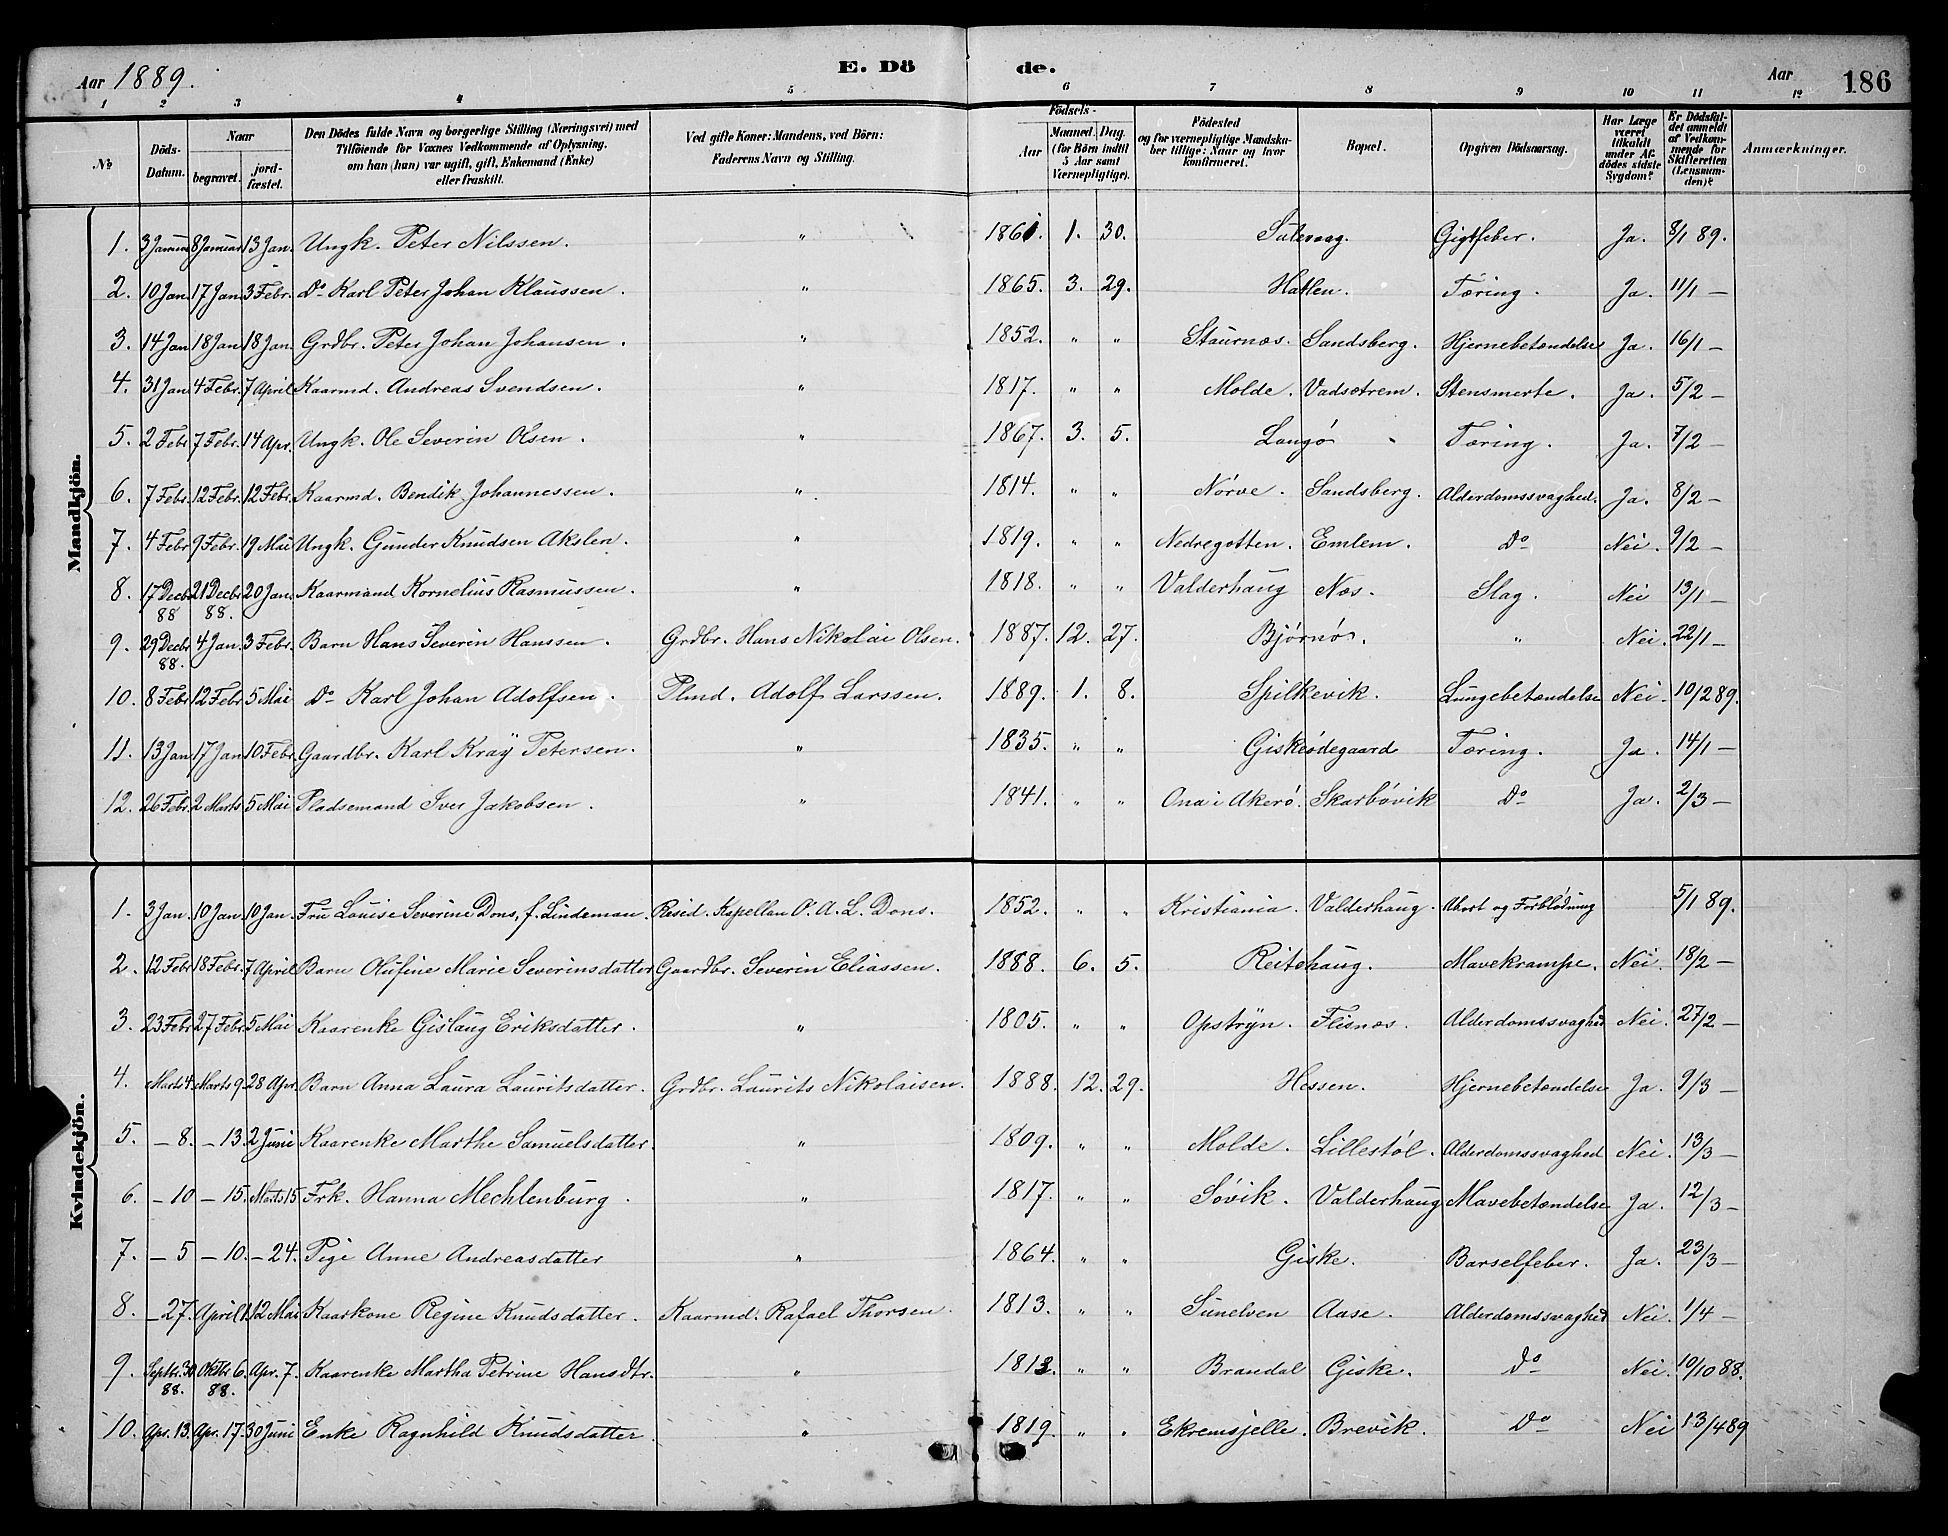 Aar 1889. E. Dö de. Aar 186
1 2 3 4 5 6 7 8 9 10 11 12
№ Döds-Datum. Naar begravet. jordfæstet. Den Dödes fulde Navn og borgerlige Stilling (Næringsvei) med Tilföiende for Voxnes Vedkommende af Oplysning, om han (hun) var ugift, gift, Enkemand (Enke) eller fraskilt. Ved gifte Koner: Mandens, ved Börn: Faderens Navn og Stilling. Födsels- Aar Maaned. Dag. (for Börn indtil 5 Aar samt Værnepligtige). Födested og for værnepligtige Mandskaber tillige: Naar og hvor konfirmeret. Bopæl. Opgiven Dödsaarsag. Har Læge været tilkaldt under Afdödes sidste Sygdom? Er Dödsfaldet anmeldt af Vedkommende for Skifteretten (Lensmanden)? Anmærkninger.
Mandkjön.
1. 3 Januar 8 Januar 13 Jan. Ungk. Peter Nilssen. " 1861. 1. 30. Sulevaag. Gigtfeber. Ja. 8/1 89.
2. 10 Jan 17 Jan 3 Febr. Do Karl Peter Johan Klaussen. " 1865. 3. 29. Hatlen. Tæring. Ja. 11/1 —
3. 14 Jan 18 Jan 18 Jan. Grdbr. Peter Johan Johansen. " 1852. " " Staurnæs. Sandsberg. Hjernebetændelse Ja. 16/1 —
4. 31 Jan 4 Febr. 7 April Kaarmd. Andreas Svendsen. " 1817. " " Molde. Vadsætrem. Stensmerte. Ja. 5/2 —
5. 2 Febr 7 Febr. 14 Apr. Ungk. Ole Severin Olsen. " 1867. 3. 5. Langø Tæring. Ja. 7/2 —
6. 7 Febr. 12 Febr. 12 Febr. Kaarmd. Bendik Johannessen. " 1814. " " Nørve. Sandsberg. Alderdomssvaghed. Ja. 8/2 —
7. 4 Febr 9 Febr. 19 Mai Ungk. Gunder Knudsen Akslen. " 1819. " " Nedregotten. Emlem. Do Nei. 9/2 —
8. 17 Decbr 88 21 Decbr 88. 20 Jan. Kaarmand Kornelius Rasmussen. " 1818. " " Valderhaug Næs. Slag. Nei 13/1 —
9. 29 Decbr 88. 4 Jan. 3 Febr. Barn Hans Severin Hanssen. Grdbr. Hans Nikolai Olsen. 1887. 12. 27. Bjørnø. " Nei. 22/1 —
10. 8 Febr 12 Febr 5 Mai Do Karl Johan Adolfsen. Plmd. Adolf Larssen. 1889. 1. 8. Spilkevik. Lungebetændelse Nei. 10/2 89.
11. 13 Jan 17 Jan 10 Febr. Gaardbr. Karl Kraÿ Petersen. " 1835. " " Giskeødegaard Tæring. Ja. 14/1 —
12. 26 Febr. 2 Marts 5 Mai Pladsemand Iver Jakobsen. " 1841. " " Ona i Akerø. Skarbövik Do Ja. 2/3 —
Kvindekjön.
1. 3 Jan. 10 Jan. 10 Jan. Fru Louise Severine Dons, f. Lindeman. Resid. Kapellan O. A. L. Dons. 1852. " " Kristiania. Valderhaug. Abort og Forblödning 5/1 89.
2. 12 Febr 18 Febr. 7 April Barn Olufine Marie Severinsdatter Gaardbr. Severin Eliassen. 1888. 6. 5. Reitehaug. Mavekrampe. Nei. 18/2 —
3. 23 Febr 27 Febr. 5 Mai Kaarenke Gislaug Eriksdatter. " 1805. " " Opstryn. Flisnæs. Alderdomssvaghed Nei. 27/2 —
4. Marts 4. Marts 9. 28 Apr. Barn Anna Laura Lauritsdatter. Grdbr. Laurits Nikolaisen. 1888. 12. 29. Hessen. Hjernebetændelse Ja. 9/3 —
5. — 8. — 13. 2 Juni Kaarenke Marthe Samuelsdatter. " 1809. " " Molde. Lillestøl. Alderdomssvaghed Nei. 13/3 —
6. — 10 — 15. Marts 15 Frk. Hanna Mechlenburg. " 1817. " " Søvik. Valderhaug Mavebetændelse Ja. 12/3 —
7. — 5 — 10. — 24. Pige Anne Andreasdatter " 1864. " " Giske. Barselfeber. Ja. 23/3 —
8. — 27. April 1. 12 Mai Kaarkone Regine Knudsdatter. Kaarmd. Rafael Thorsen. 1813. " " Sunelven Aase. Alderdomssvaghed Nei. 1/4 —
9. Septbr. 30 88. Oktbr 6. 88. Apr. 7. Kaarenke Martha Petrine Hansdtr. " 1813. " " Brandal Giske. Do Nei. 10/10 88.
10. Apr. 13. Apr. 17. 30 Juni Enke Ragnhild Knudsdatter. " 1819. " " Ekremsjelle. Brevik. Do Nei 13/4 89